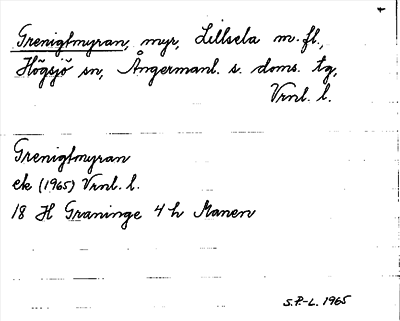 Grenigtmyran, myr, Lillsela m. fl.,
Högsjö sn, Ångermanl. s. doms. tg,
Vrnl. l.
Grenigtmyran
ek (1965) Vrnl. l.
18 H Graninge 4 h Manen
S.P.-L. 1965